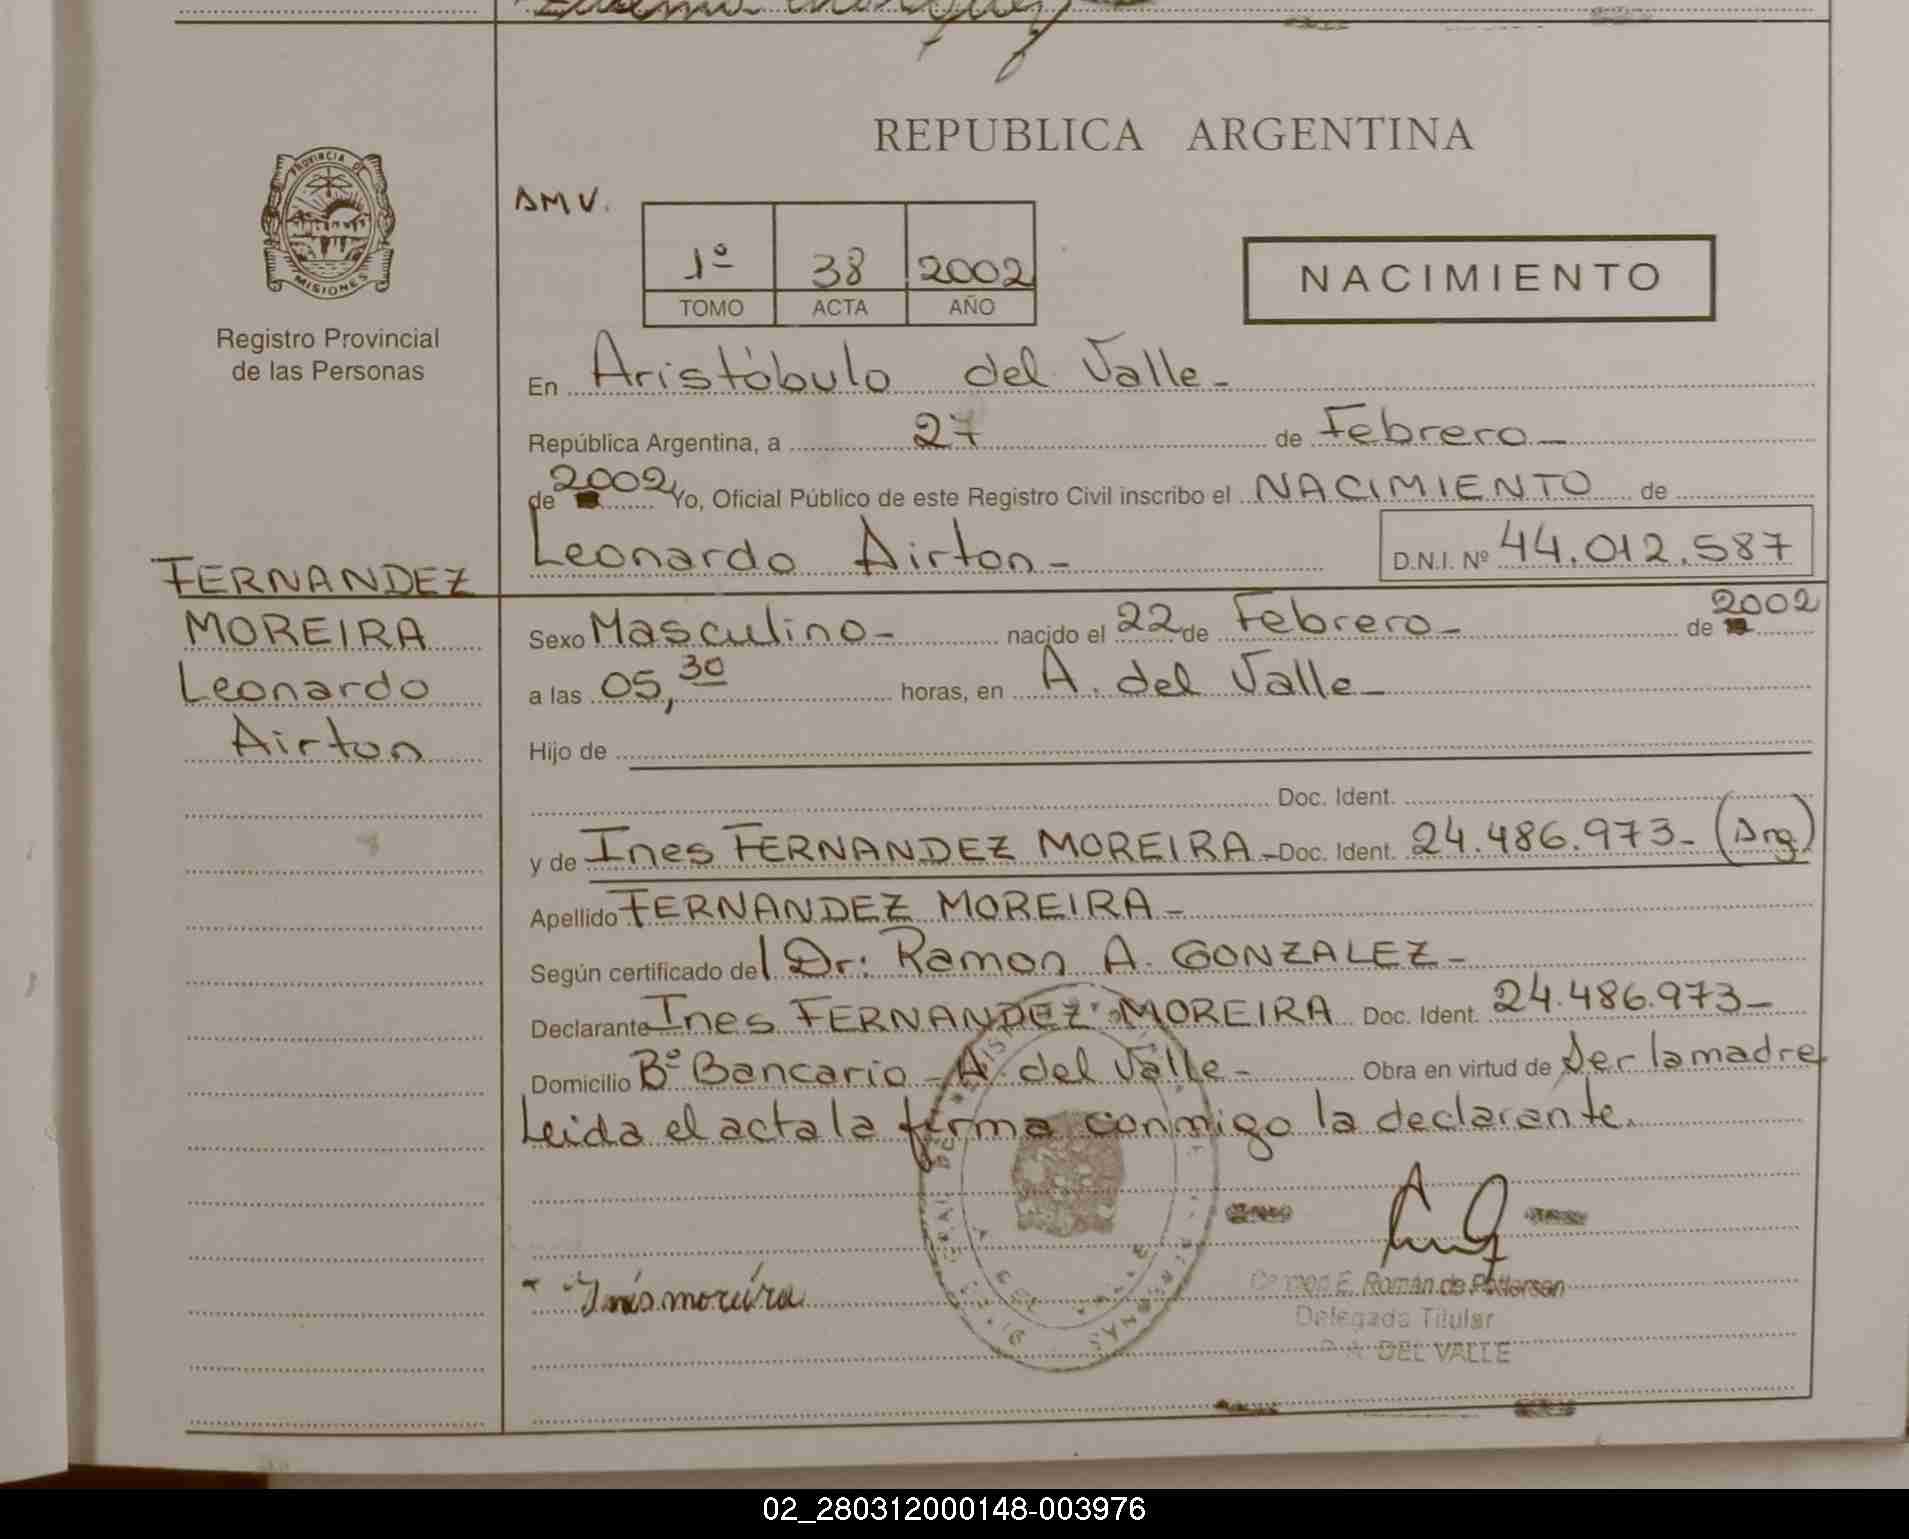 REPUBLICA ARGENTINA
PROVINCIA DE
MISIONES
Registro Provincial
de las Personas
AMV.
1º 38 2002
TOMO ACTA AÑO
NACIMIENTO
En Aristóbulo del Valle-
República Argentina, a 27 de Febrero-
de 2002 Yo, Oficial Público de este Registro Civil inscribo el NACIMIENTO de
Leonardo Airton-
D.N.I. Nº 44.012.587
FERNANDEZ
MOREIRA
Leonardo
Airton
Sexo Masculino- nacido el 22 de Febrero- de 2002
a las 05,30 horas, en A. del Valle-
Hijo de
Doc. Ident.
y de Ines FERNANDEZ MOREIRA- Doc. Ident. 24.486.973- (Arg)
Apellido FERNANDEZ MOREIRA-
Según certificado del Dr: Ramon A. GONZALEZ-
Declarante Ines FERNANDEZ MOREIRA Doc. Ident. 24.486.973-
Domicilio Bº Bancario - A. del Valle- Obra en virtud de Ser la madre
Leida el acta la firma conmigo la declarante.
Inés moreira
E. Román de
Delegada Titular
DEL VALLE
02_280312000148-003976